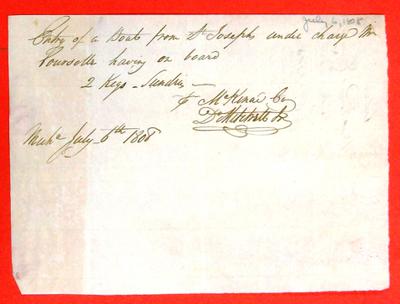 July 6, 1808
Entry of a Boate from St Josephs under charge Mr
Rourselle having on board
2 Kegs - Sundries -
McKenzie Co
D. Mitchell Jr
Mich. July 6th 1808